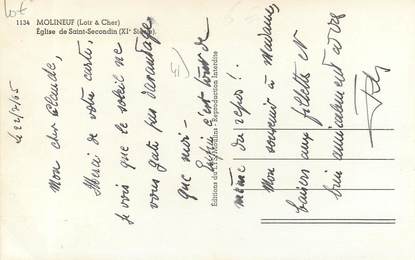 1134 MOLINEUF (Loir & Cher)
Église de Saint-Secondin (XIe Siècle).
le 22/7/65
Mon cher Claude,
Merci de votre carte.
Je vois que le soleil ne
vous gate pas davantage
que moi -
Enfin c'est tout de
même du repos !
Mon souvenir à Madame,
baisers aux fillettes et
bien amicalement à vous
Éditions du - Reproduction Interdite